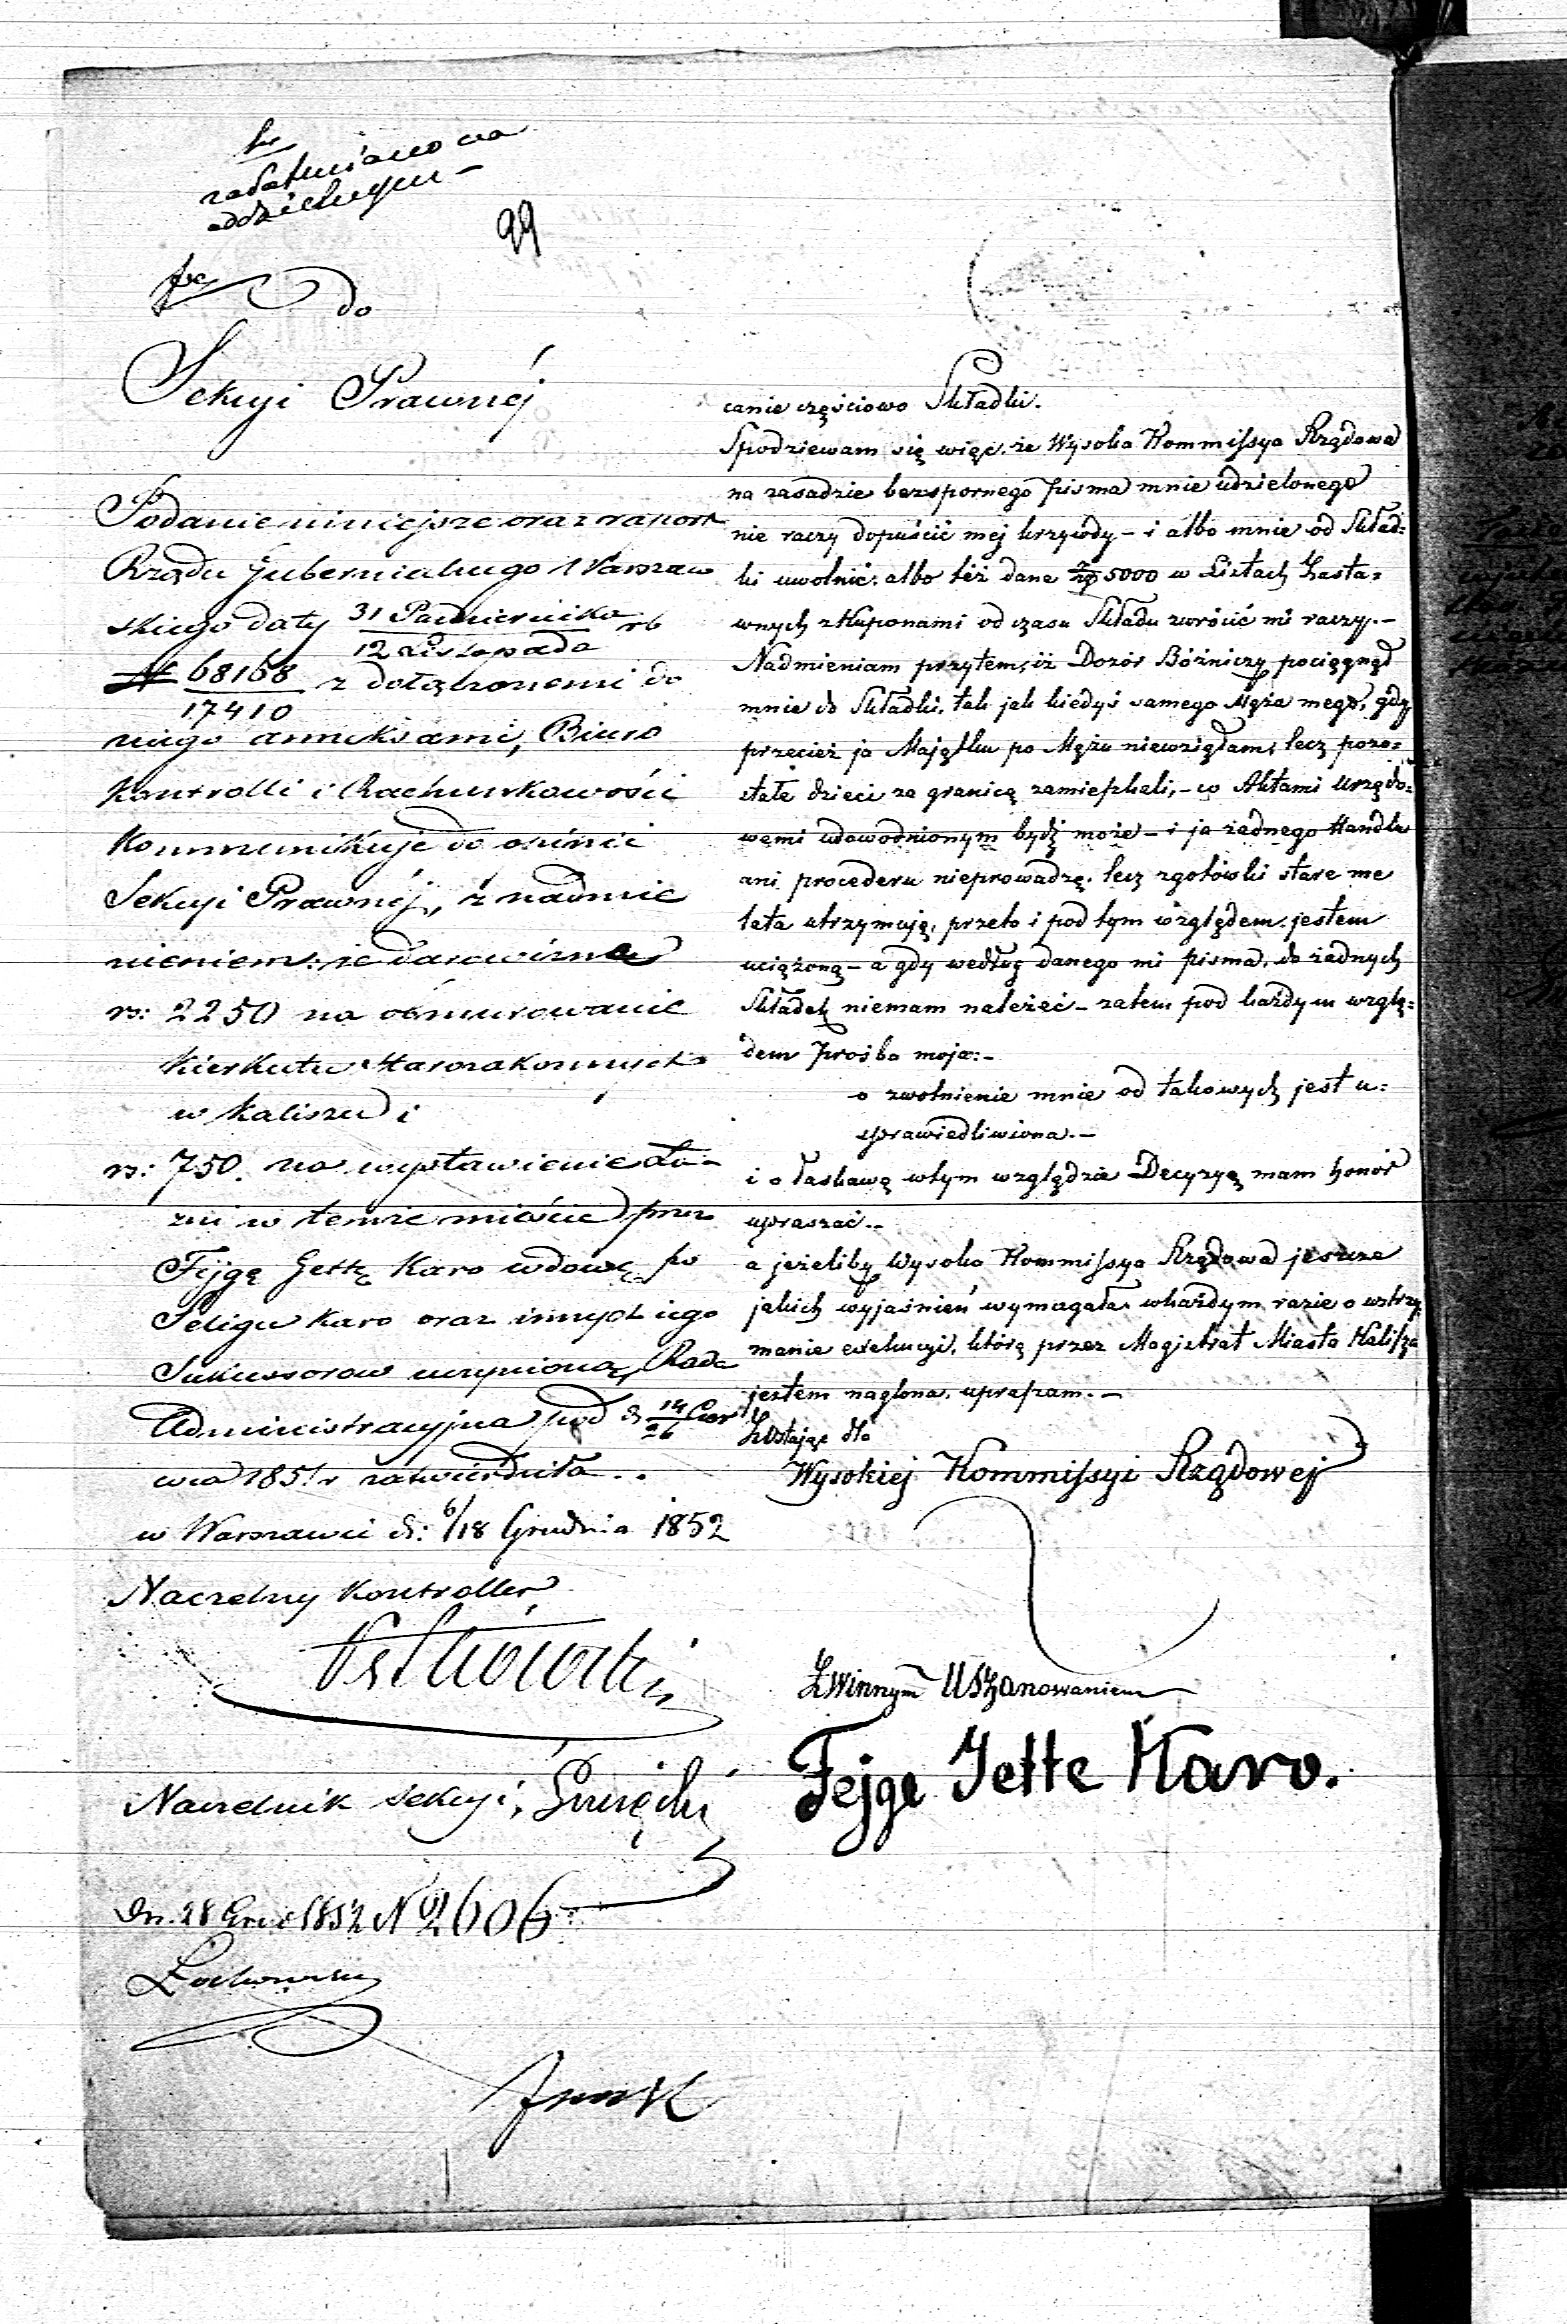 załatwiono na
oddzielnym –
99
do
Sekcyi Prawnéj
Podanie niniejsze oraz raport
Rządu Gubernialnego Warszaw
skiego daty 31 Października rb
12 Listopada
№ 68168 z dołączonemi do
17410
niego anneksami, Biuro
Kontrolli i Rachunkowości
kommunikuje do opinii
Sekcyi Prawnéj, z nadmie
nieniem: że darowiznę
rs: 2250 na obmurowanie
kierkutu starozakonnych
w Kaliszu i
rs: 750. na wystawienie
w temże mieście przez
Fejgę Jettę Karo wdowę po
Seligu Karo oraz innych jego
Sukcessorow uczynioną, Rada
Administracyjna pod d 14/26 Czer
wca 1851 r zatwierdziła..
w Warszawie d: 6/18 Grudnia 1852
Naczelny Kontroller
Naczelnik Sekcyi,
Dn. 28 1852 N 2606
canie częściowo Składki.
Spodziewam się więc, że Wysoka Kommissya Rządowa
na zasadzie bezspornego pisma mnie udzielonego
nie raczy dopuścić mej krzywdy – i albo mnie od Skład=
ki uwolnić, albo też dane złp 5000 w Listach Zasta=
wnych z Kuponami od czasu Składu zwrócić mi raczy. –
Nadmieniam przytem, iż Dozór Bóżniczy pociągnął
mnie do Składki, tak jak kiedyś samego Męża mego, gdy
przecież ja Majątku po Mężu niewzięłam, lecz pozo=
stałe dzieci za granicą zamieszkali, – co Aktami Urzędo=
wemi udowodnionym bydź może – i ja żadnego Handlu
ani procederu nieprowadzę, lecz zgotówki stare me
lata utrzymuję, przeto i pod tym względem jestem
uciążoną – a gdy według danego mi pisma, do żadnych
Składek niemam należeć – zatem pod każdym wzglę=
dem Prośba moja: –
o zwolnienie mnie od takowych jest u=
sprawiedliwiona. –
i o łaskawą wtym względzie Decyzyę mam honor
upraszać. –
a jeżeliby Wysoka Kommissya Rządowa jeszcze
jakich wyjaśnień wymagała, wkażdym razie o wstrzy
manie exekucyi, którą przez Magistrat Miasta Kalisza
jestem naglona, upraszam. –
Zostając dla
Wysokiej Kommissyi Rządowej
Zwinnym Uszanowaniem
Fejge Jette Karo.